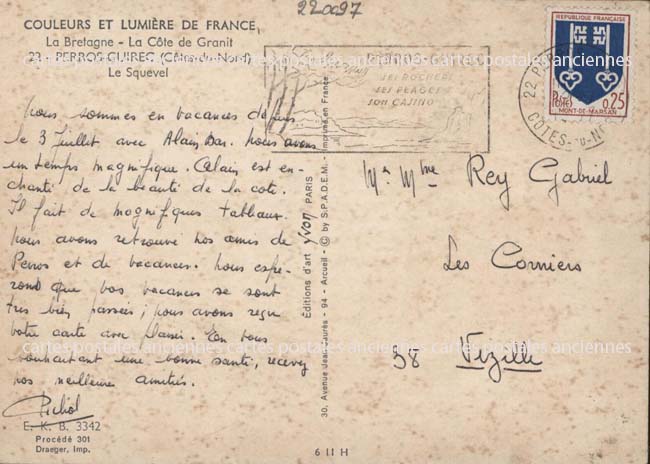 220097
COULEURS ET LUMIÈRE DE FRANCE
La Bretagne - La Côte de Granit
22 - PERROS-GUIREC (Côtes-du-Nord)
Le Squevel
SES ROCHERS
SES PLAGES
SON CASINO
RÉPUBLIQUE FRANÇAISE
POSTES 0,25
MONT-DE-MARSAN
22 P
COTES-DU-NORD
Nous sommes en vacances depuis
le 3 Juillet avec Alain Bar. Nous avons
un temps magnifique. Alain est en-
chanté de la beauté de la cote.
Il fait de magnifiques tableaux.
Nous avons retrouvé nos amis de
Perros et de vacances. Nous espe-
rons que vos vacances se sont
très bien passées, nous avons reçu
votre carte avec plaisir. En vous
souhaitant une bonne santé, recevez
nos meilleures amitiés.
Pichol
E. K. B. 3342
Procédé 301
Draeger, Imp.
Editions d'art yvon PARIS
30, Avenue Jean-Jaurès - 94 - Arcueil - © by S.P.A.D.E.M. - Imprimé en France
6 II H
Mr Mme Rey Gabriel
Les Corniers
38 Vizille
cartes postales anciennes cartes postales anciennes cartes postales anciennes
cartes postales anciennes cartes postales anciennes cartes postales anciennes